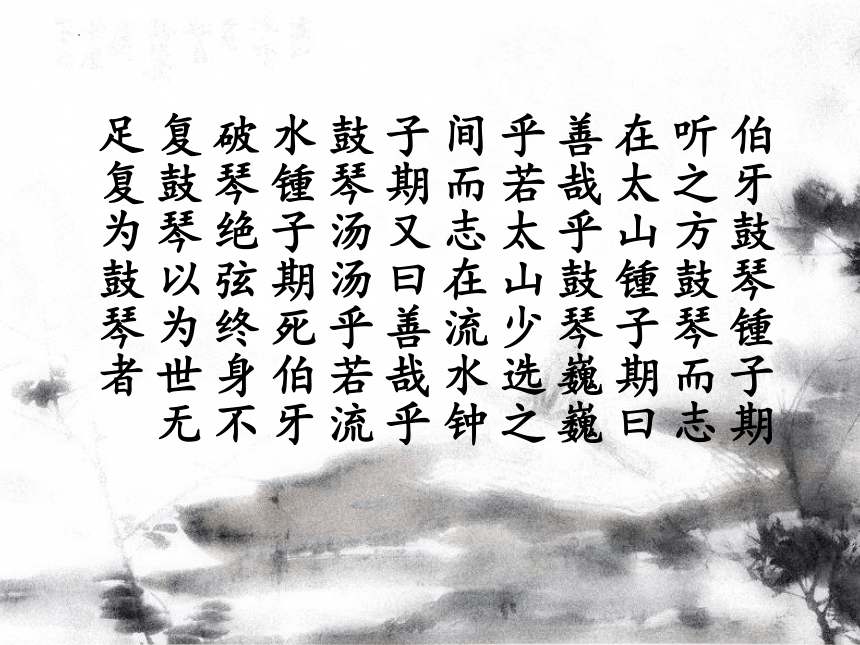 伯牙鼓琴锺子期
听之方鼓琴而志
在太山锺子期曰
善哉乎鼓琴巍巍
乎若太山少选之
间而志在流水钟
子期又曰善哉乎
鼓琴汤汤乎若流
水锺子期死伯牙
破琴绝弦终身不
复鼓琴以为世无
足复为鼓琴者